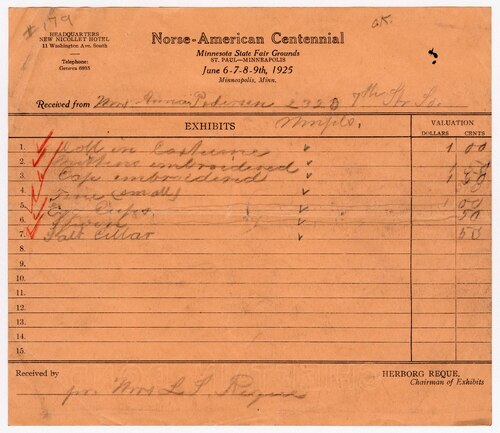 # 179
HEADQUARTERS
NEW NICOLLET HOTEL
11 Washington Ave. South
Telephone:
Geneva 6893
GK.
Norse-American Centennial
Minnesota State Fair Grounds
ST. PAUL—MINNEAPOLIS
June 6-7-8-9th, 1925
Minneapolis, Minn.
Received from Mrs Anna Pedersen 2323 7th St So.
EXHIBITS
VALUATION
DOLLARS CENTS
1. Doll in Costume 1 00
2. embroidered
3. Cap embroidered 1 50
4. (small)
5. Egg Cups 1 00
6. 50
7. Salt Cellar 50
8.
9.
10.
11.
12.
13.
14.
15.
Received by
pr. Mrs L. S. Reque
HERBORG REQUE.
Chairman of Exhibits